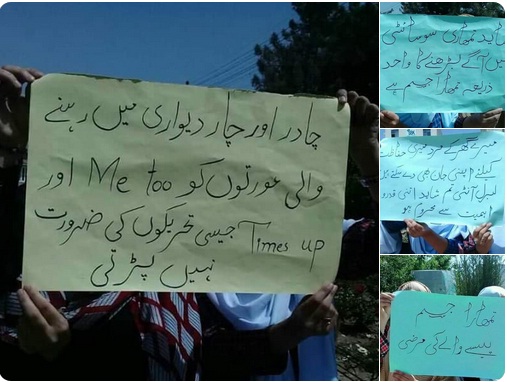 چادر اور چار دیواری میں رہنے
والی عورتوں کو Me too اور
Times up جیسی تحریکوں کی ضرورت
نہیں پڑتی
شاید تمھاری سوسائٹی
میں آگے بڑھنے کا واحد
ذریعہ تمھارا جسم ہے
میرے گھر کے مرد میری حفاظت
کیلئے اپنی جان بھی دے سکتے ہیں
لبرل آنٹی تم شاید اتنی قدر و
اہمیت سے محروم ہو
تمھارا جسم
پیسے والے کی مرضی